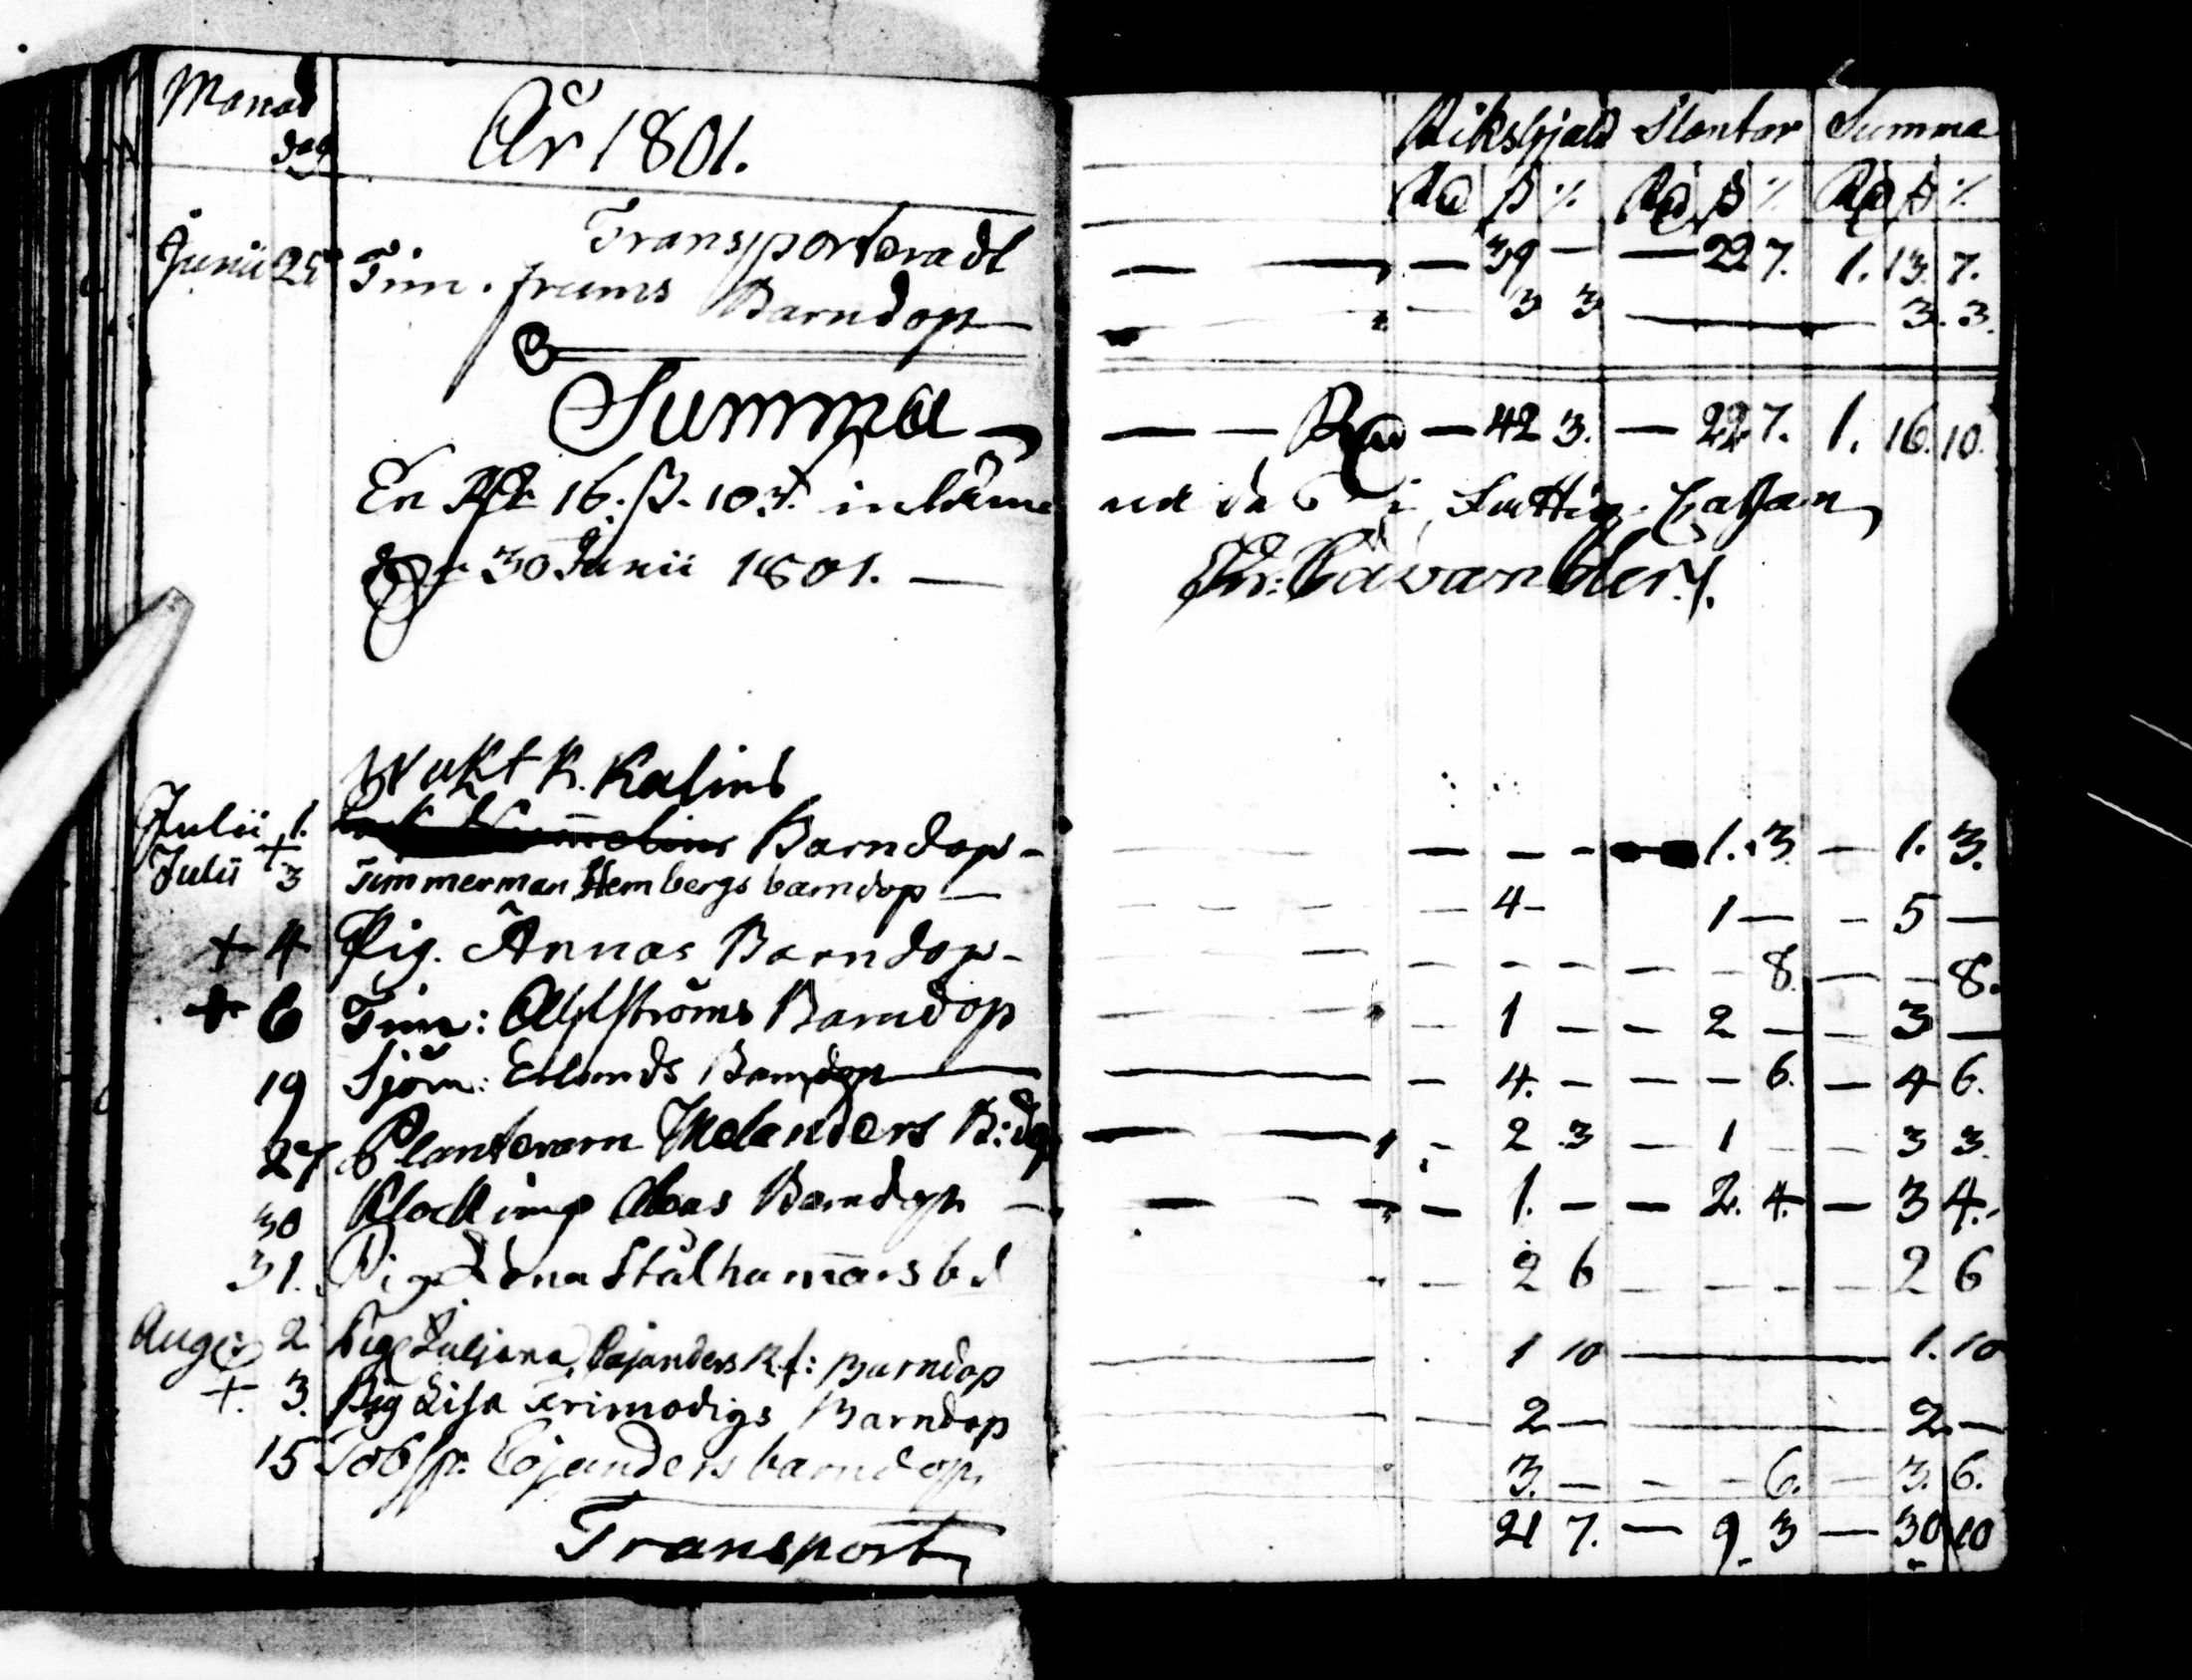 Månad År 1801. Riksgjald Slantar Summa
dag Rd ß % Rd ß % Rd ß %
Transporteradt — — — 39 — — 22 7. 1. 13. 7.
Junii 25 Tim. frams Barndop — — 3 3 — 3. 3.
Summa — — — Rd — 42 3. — 22 7. 1. 16. 10.
En Rd 16. ß. 10 inlämnades i Fattig. Cassan
d 30 Junii 1801. — Cavander.
Wakt K. Kalins
Julii 1. Barndop - — - - 1. 3 — 1. 3.
Julii + 3 Timmerman Hembergs barndop — — 4 - 1 — - 5 —
+ 4 Pig. Annas Barndop - - - - — - 8. — - 8.
+ 6 Tim: Ahlströms Barndop - 1 — - 2 — - 3 —
19 Sjöm: Erlunds Barndop — - 4. - - - 6. — 4 6.
27 Melanders B:dop — - 2 3 — 1 - - 3 3.
30 Barndop — — 1. - — 2. 4. — 3 4.
31. Pig Stålhammars bd - — 2 6 - - - - 2 6
Aug: 2. Pig Juljana, Cajanders Barndop — 1 10 — 1. 10
+. 3. Pig Lisa Frimodigs Barndop — 2 — — 2. —
15 Cajanders barndop. 3. — - - 6. — 3. 6.
Transport 21 7. — 9. 3 — 30 10